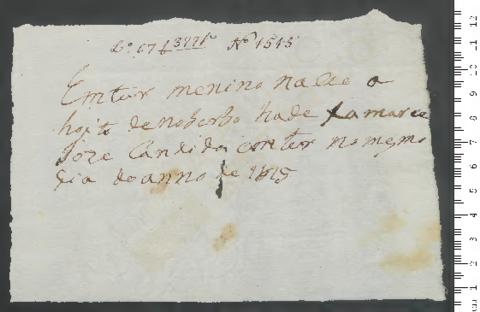 Lº 67 f 377 Nº 1515
Em tur menino naseo a
hojto de nobenbo hade xamarce
Joze Candido entrer no mesmo
dia do anno de 1815